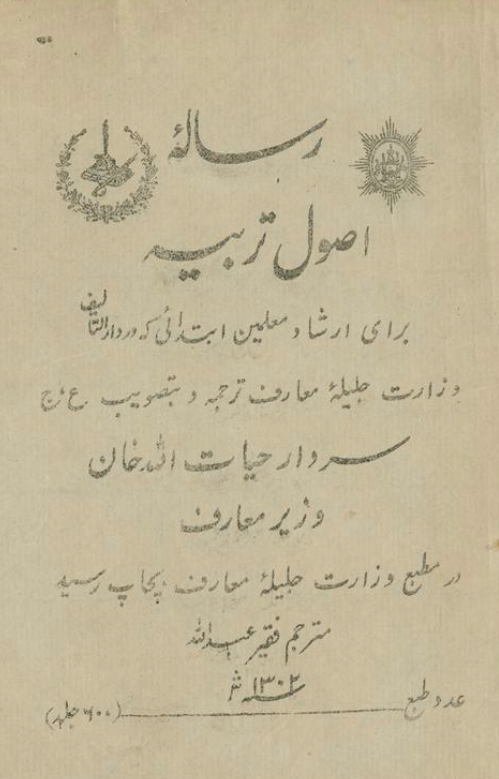 رسالهٔ
اصول تربیه
برای ارشاد معلمین ابتدائی که در دارالتالیف
وزارت جلیلهٔ معارف ترجمه و بتصویب ع، ج
سردار حیات الله خان
وزیر معارف
در مطبع وزارت جلیلهٔ معارف بچاپ رسید
مترجم فقیر عبدالله
سنه ۱۳۰۲ ش
عدد طبع (۶۰۰ جلد)